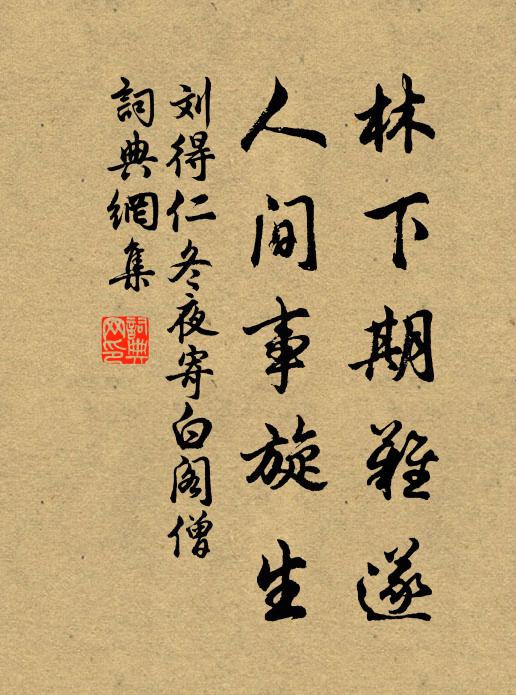 林下期難遂
人间事旋生
刘得仁冬夜寄白阁僧
詞典網集
詞典
网印